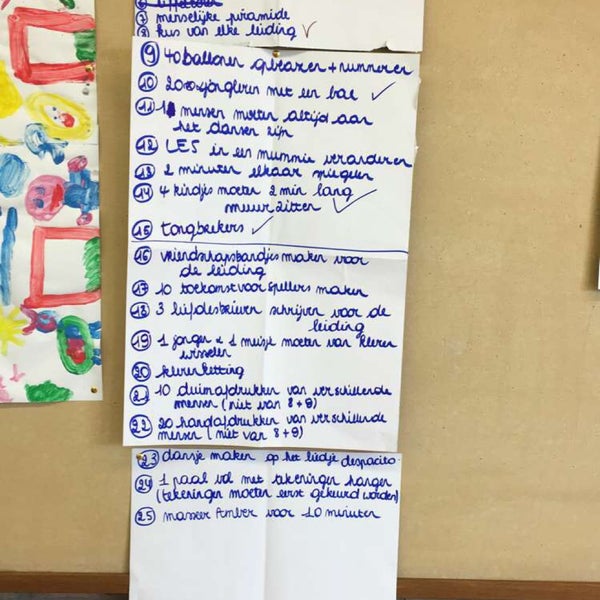 7 menselijke piramide
8 kus van elke leiding ✓
9 40 ballonen opblazen + nummeren
10 20 x jongleren met een bal ✓
11 1 mensen moeten altijd aan
het dansen zijn
12 LES in een mummie veranderen
13 2 minuten elkaar spiegelen
14 4 kindjes moeten 2 min lang
muurzitten ✓
15 tongbrekers ✓
16 vriendschapsbandjes maken voor
de leiding
17 10 toekomstvoorspellers maken
18 3 liefdesbrieven schrijven voor de
leiding
19 1 jongen & 1 meisje moeten van kleren
wisselen
20 klerenketting
21 10 duimafdrukken van verschillende
mensen (niet van 8+9)
22 20 handafdrukken van verschillende
mensen (niet van 8+9)
23 dansje maken op het liedje despacito
24 1 paal vol met tekeningen hangen
(tekeningen moeten eerst gekeurd worden)
25 masseer Amber voor 10 minuten